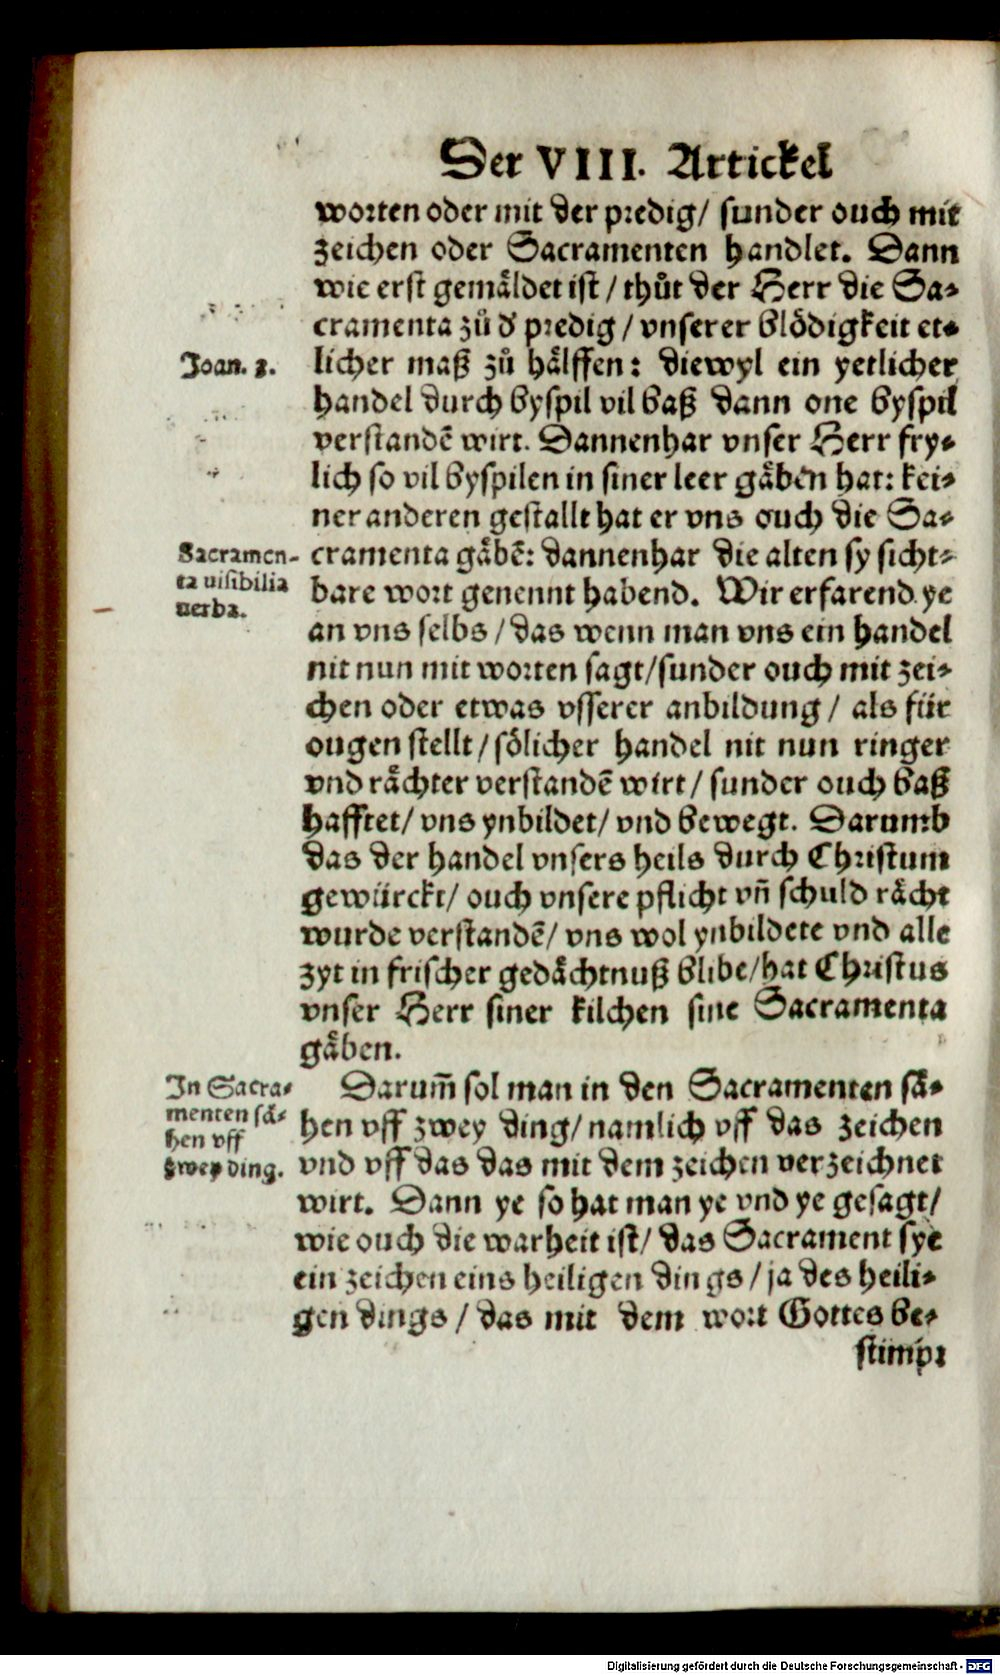 Der VIII. Artickel
worten oder mit der predig/ sunder ouch mit
zeichen oder Sacramenten handlet. Dann
wie erst gemäldet ist / thůt der Herr die Sa-
cramenta zů d' predig / vnserer blödigkeit et-
Joan. 3.
licher maß zů hälffen: diewyl ein yetlicher
handel durch byspil vil baß dann one byspil
verstandē wirt. Dannenhar vnser Herr fry-
lich so vil byspilen in siner leer gäben hat: kei-
ner anderen gestallt hat er vns ouch die Sa-
Sacramen-
ta uisibilia
uerba.
cramenta gäbē: dannenhar die alten sy sicht-
bare wort genennt habend. Wir erfarend ye
an vns selbs / das wenn man vns ein handel
nit nun mit worten sagt/sunder ouch mit zei-
chen oder etwas vsserer anbildung / als für
ougen stellt / sölicher handel nit nun ringer
vnd rächter verstandē wirt / sunder ouch baß
hafftet/ vns ynbildet/ vnd bewegt. Darumb
das der handel vnsers heils durch Christum
gewürckt/ ouch vnsere pflicht vñ schuld rächt
wurde verstandē/ vns wol ynbildete vnd alle
zyt in frischer gedächtnuß blibe/hat Christus
vnser Herr siner kilchen sine Sacramenta
gäben.
In Sacra-
menten sä-
hen vff
zwey ding.
Darum̄ sol man in den Sacramenten sä-
hen vff zwey ding/ namlich vff das zeichen
vnd vff das das mit dem zeichen verzeichnet
wirt. Dann ye so hat man ye vnd ye gesagt/
wie ouch die warheit ist/ das Sacrament sye
ein zeichen eins heiligen dings / ja des heili-
gen dings / das mit dem wort Gottes be-
stimpt
Digitalisierung gefördert durch die Deutsche Forschungsgemeinschaft - DFG